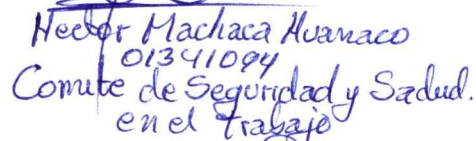 Hector Machaca Huanaco
01341094
Comite de Seguridad y Salud.
en el Trabajo